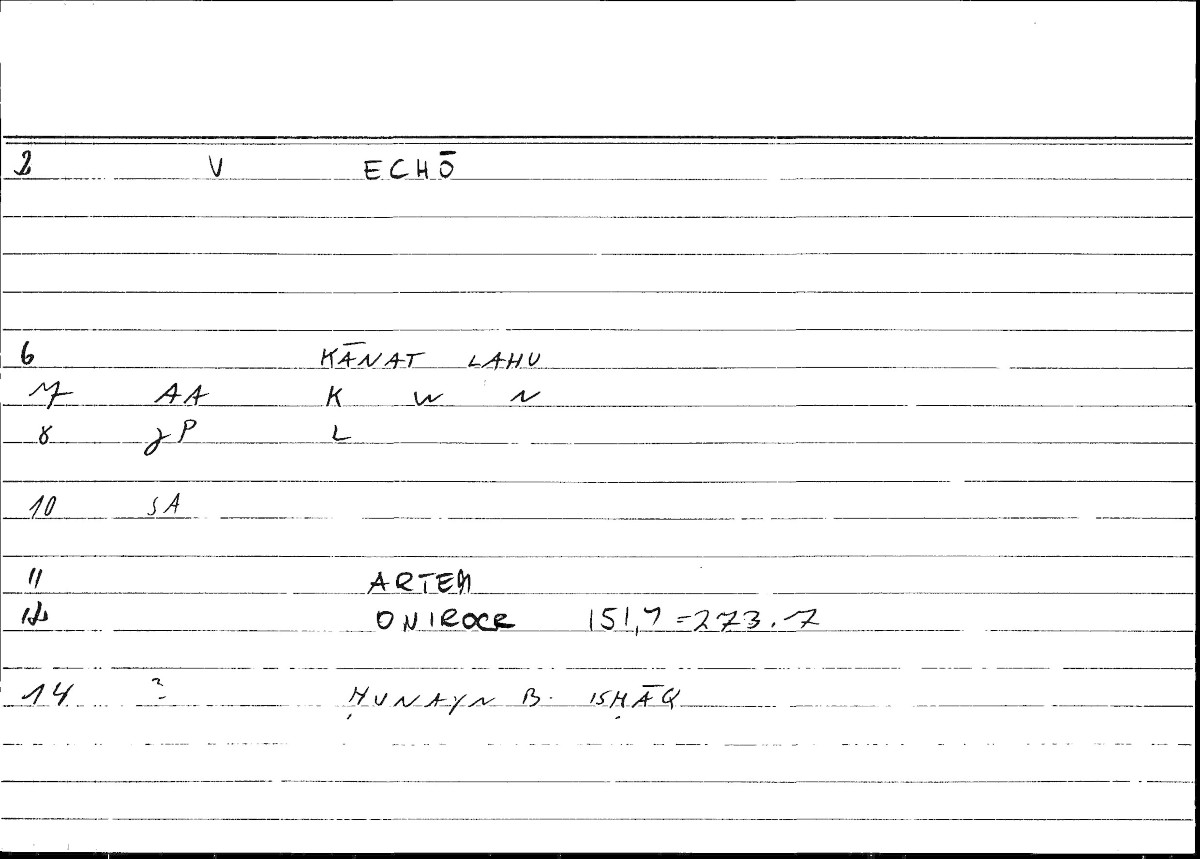 2 V ECHŌ
6 KĀNAT LAHU
7 AA K W N
8 γP L
10 SA
11 ARTEM
12 ONIROCR 151,7=273.7
14 ? ḤUNAYN B. ISḤĀQ